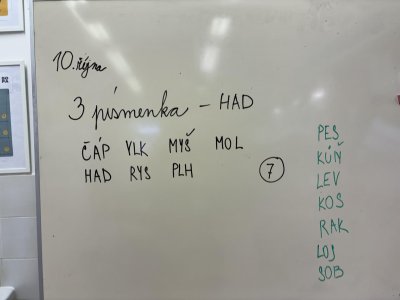 10. října
3 písmenka - HAD
ČÁP VLK MYŠ MOL
HAD RYS PLH
7
PES
KŮŇ
LEV
KOS
RAK
LOS
SOB